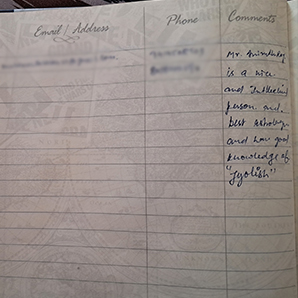 Email / Address Phone Comments
Mr.
is a nice
and Intellectual
person and
best Astrologer
and have good
knowledge of
"Jyotish"